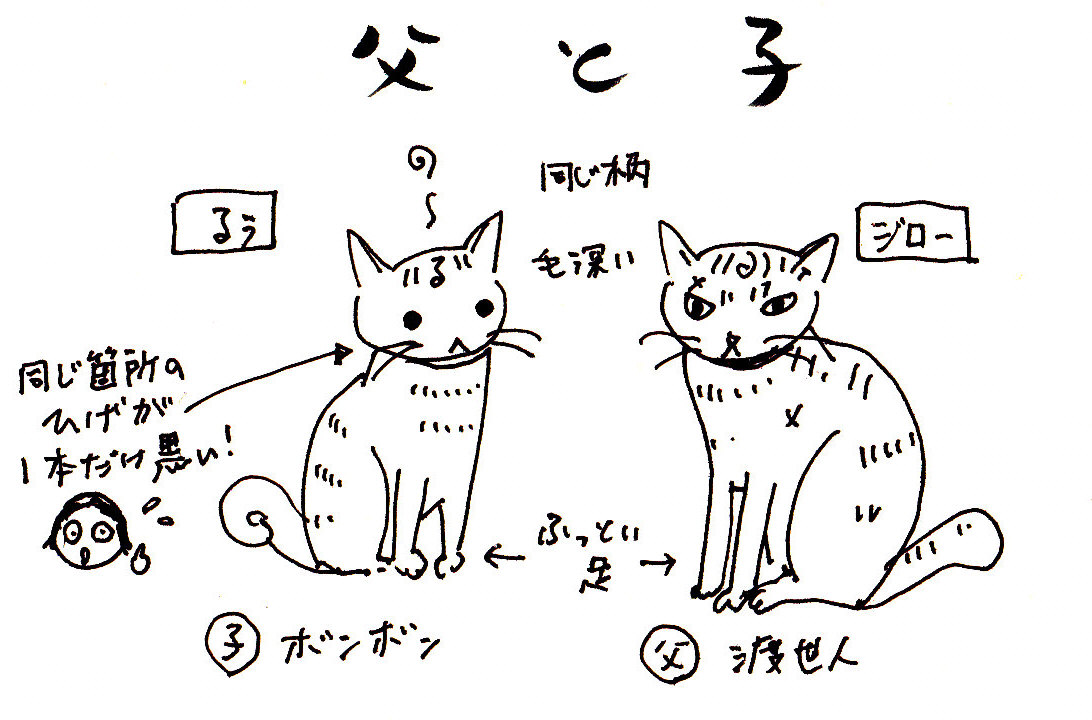 父と子
の〜
同じ柄
るぅ
ジロー
毛深い
る
同じ箇所の
ひげが
1本だけ黒い!
ふっとい
足
子 ボンボン
父 渡世人